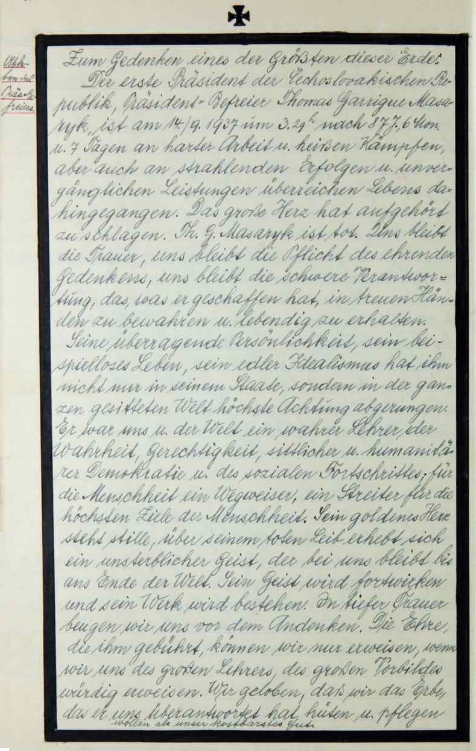 Zum Gedenken eines der Größten dieser Erde!
Der erste Präsident der Čechoslovakischen Re-
publik, Präsident-Befreier Thomas Garrigue Masa-
ryk, ist am 14./9. 1937 um 3.29h nach 87 J, 6 Mon.
u. 7 Tagen an harter Arbeit u. heißen Kämpfen,
aber auch an strahlenden Erfolgen u. unver-
gänglichen Leistungen überreichen Lebens da-
hingegangen. Das große Herz hat aufgehört
zu schlagen. Th. G. Masaryk ist tot. Uns bleibt
die Trauer, uns bleibt die Pflicht des ehrenden
Gedenkens, uns bleibt die schwere Verantwor-
tung, das, was er geschaffen hat, in treuen Hän-
den zu bewahren u. lebendig zu erhalten.
Seine überragende Persönlichkeit, sein bei-
spielloses Leben, sein edler Idealismus hat ihm
nicht nur in seinem Staate, sondern in der gan-
zen gesitteten Welt höchste Achtung abgerungen.
Er war uns u. der Welt ein wahrer Lehrer der
Wahrheit, Gerechtigkeit, sittlicher u. humanitä-
rer Demokratie u. des sozialen Fortschrittes, für
die Menschheit ein Wegweiser, ein Streiter für die
höchsten Ziele der Menschheit. Sein goldenes Herz
steht stille, über seinem toten Leib erhebt sich
ein unsterblicher Geist, der bei uns bleibt bis
ans Ende der Welt. Sein Geist wird fortwirken
und sein Werk wird bestehen. In tiefer Trauer
beugen wir uns vor dem Andenken. Die Ehre,
die ihm gebührt, können wir nur erweisen, wenn
wir uns des großen Lehrers, des großen Vorbildes
würdig erweisen. Wir geloben, daß wir das Erbe,
das er uns überantwortet hat, hüten u. pflegen
wollen als unser kostbarstes Gut.